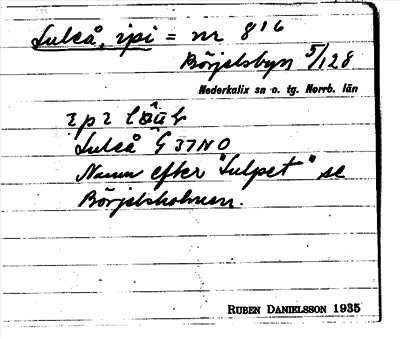 Luleå, ipi = nr 816
Börjelsbyn 5/128
Nederkalix sn o. tg. Norrb. län
Luleå G 37 N O
Namn efter "Sulpet" se
Börjelsholmen.
RUBEN DANIELSSON 1935